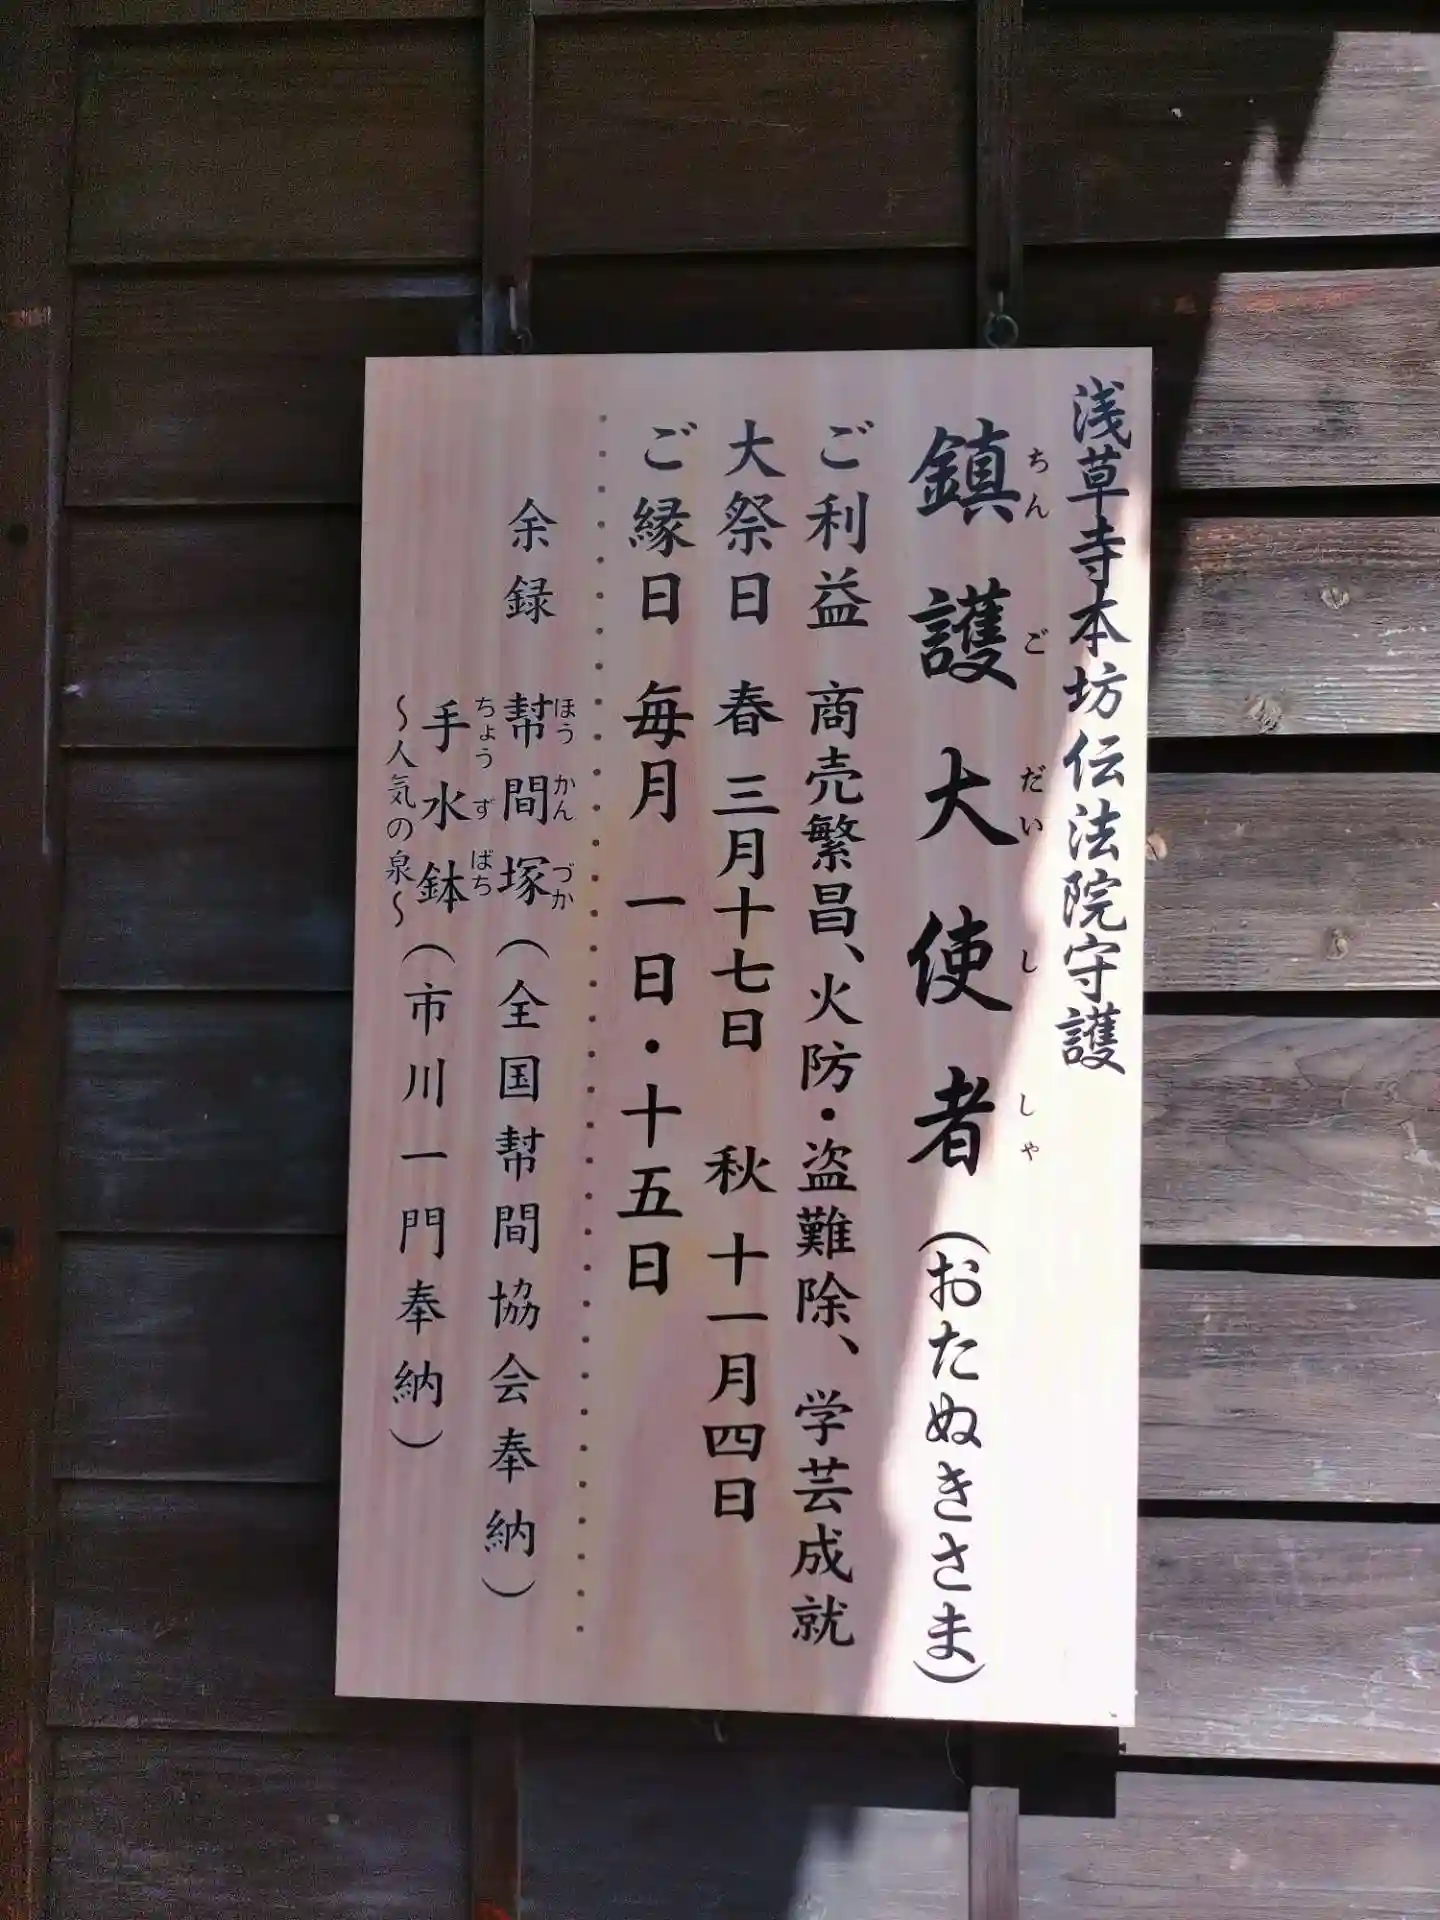 浅草寺本坊伝法院守護
鎮護大使者(おたぬきさま)
ちんごだいししゃ
ご利益 商売繁昌、火防・盗難除、学芸成就
大祭日 春 三月十七日 秋 十一月四日
ご縁日 毎月 一日・十五日
余録 幇間塚(全国幇間協会奉納)
ほうかんづか
手水鉢(市川一門奉納)
ちょうずばち
〜人気の泉〜